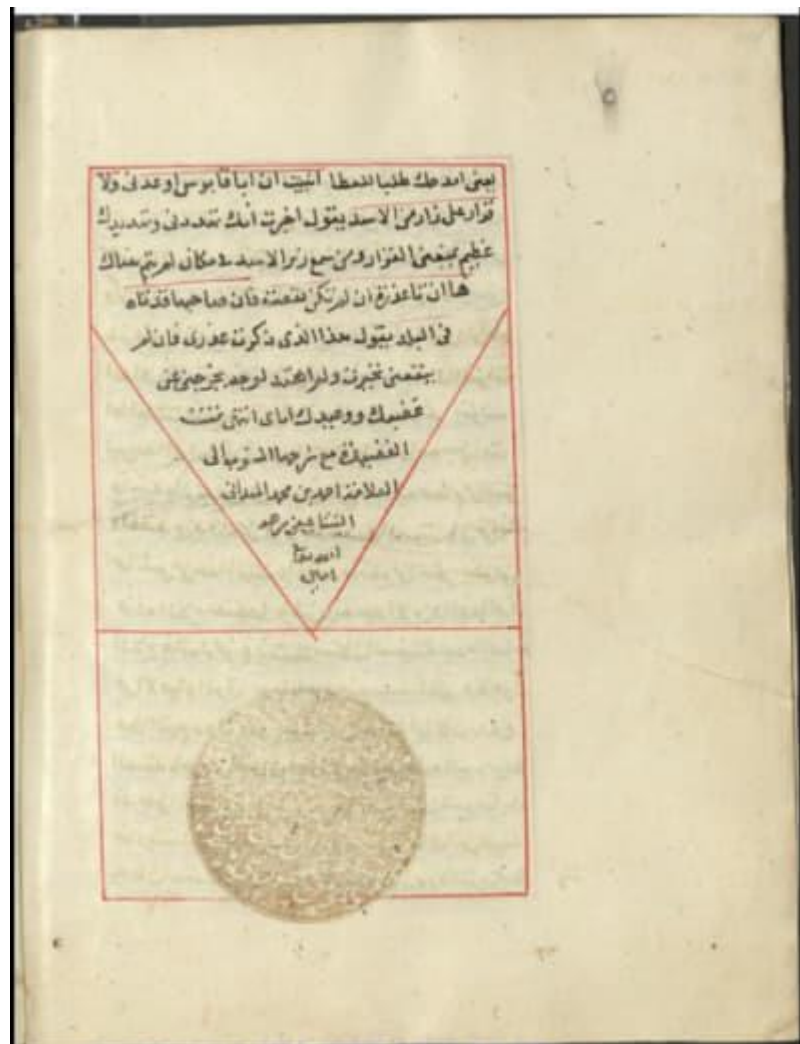 يعنى امدحك طلبا للعطا انبيت ان ابا قابوس اوعدنى ولا
قرار على زار من الاسد يقول اخبرت انك تهددنى وتهديدك
عظيم يمنعنى القرار ومن سمع زئر الاسد فى مكان لم يقم هناك
ها ان تا عذرة ان لم تكن نفعت فان صاحبها قد تاه
فى البلد يقول هذا الذى ذكرت عذرى فان لم
ينفعنى تحيرت ولم اجد لوجه يخرجنى عن
غضبك ووعيدك اياى انتهى تمت
القصيدة مع شرحها المنسوب الى
العلامة احمد بن محمد الميدانى
النيسابورى رحمه
الله تعالى